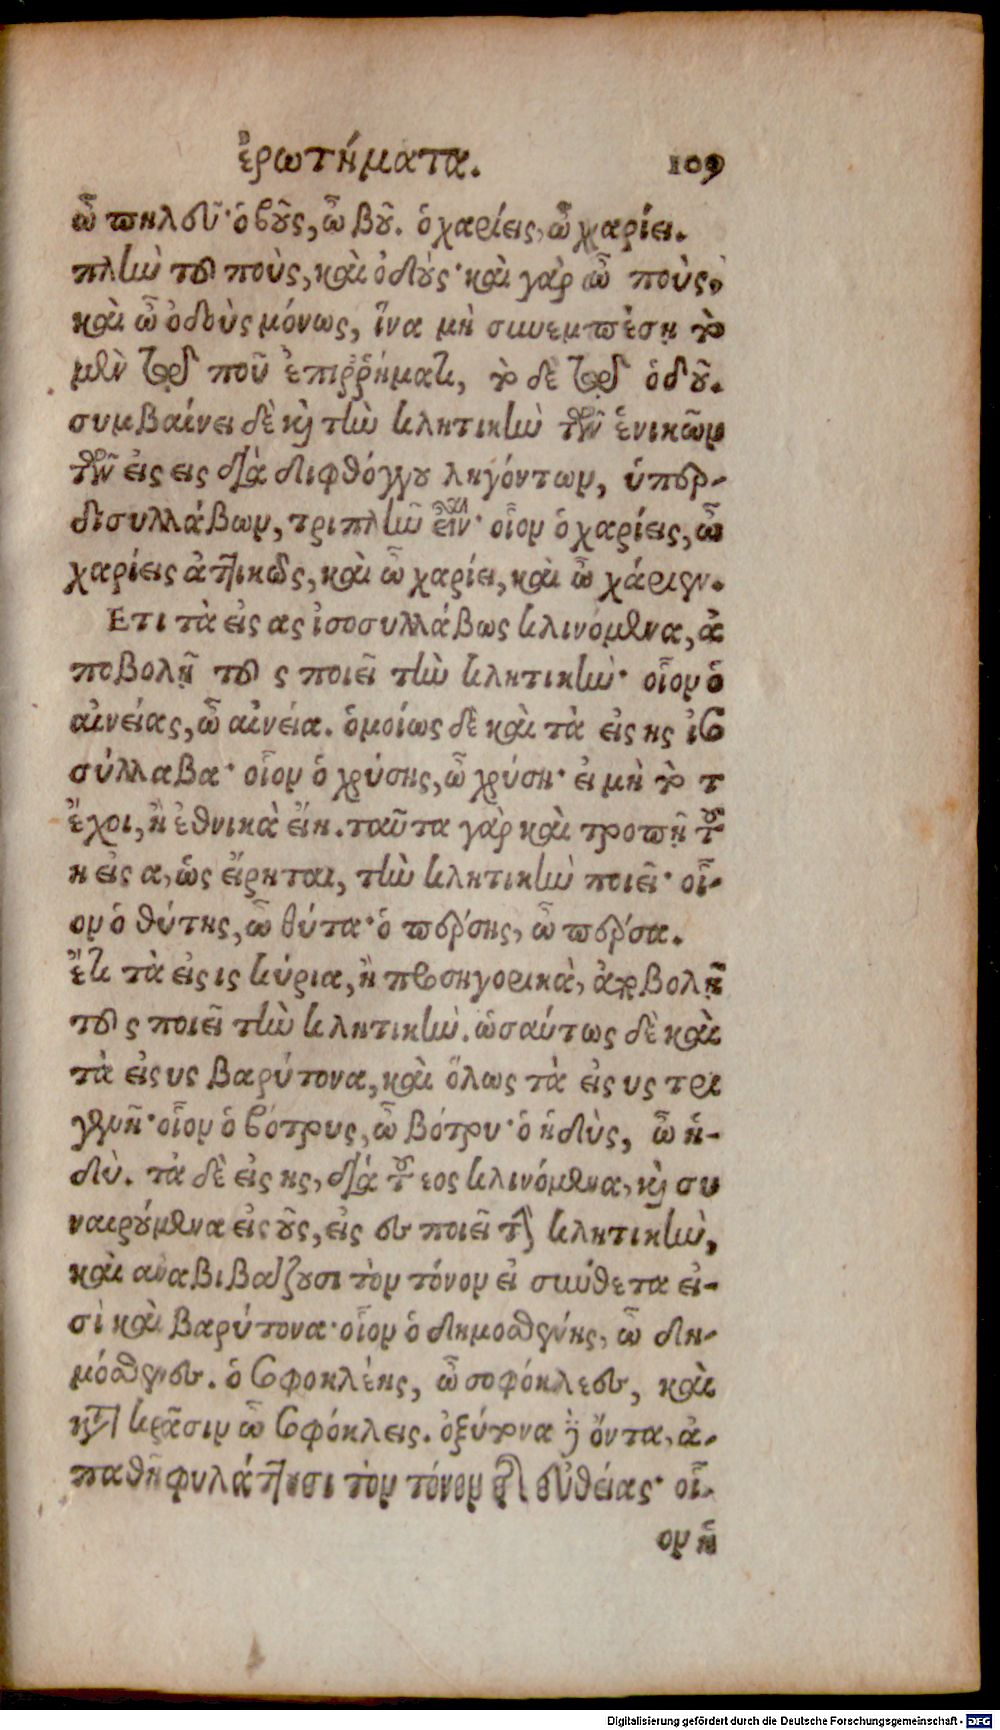 ἐρωτήματα. 109
ὦ πηλεῦ· ὁ βοῦς, ὦ βοῦ. ὁ χαρίεις, ὦ χαρίει.
πλὴν τοῦ ποὺς, καὶ ὀδούς· καὶ γὰρ ὦ ποὺς,
καὶ ὦ ὀδοὺς μόνως, ἵνα μὴ συνεμπέσῃ τὸ
μὲν τῷ ποῦ ἐπιῤῥήματι, τὸ δὲ τῷ ὁδοῦ.
συμβαίνει δὲ καὶ τὴν κλητικὴν τῶν ἑνικῶν
τῶν εἰς εις διὰ διφθόγγου ληγόντων, ὑπερ-
δισυλλάβων, τριπλῆν εἶναι· οἷον ὁ χαρίεις, ὦ
χαρίεις ἀττικῶς, καὶ ὦ χαρίει, καὶ ὦ χάριεν.
Ετι τὰ εἰς ας ἰσοσυλλάβως κλινόμενα, ἀ
ποβολῇ τοῦ ς ποιεῖ τὴν κλητικήν· οἷον ὁ
αἰνείας, ὦ αἰνεία. ὁμοίως δὲ καὶ τὰ εἰς ης ἰσο
σύλλαβα· οἷον ὁ χρύσης, ὦ χρύση· εἰ μὴ τὸ τ
ἔχοι, ἢ ἐθνικὰ εἴη. ταῦτα γὰρ καὶ τροπῇ τοῦ
η εἰς α, ὡς εἴρηται, τὴν κλητικὴν ποιεῖ· οἷ-
ον ὁ θύτης, ὦ θύτα· ὁ πέρσης, ὦ πέρσα.
ἔτι τὰ εἰς ις κύρια, ἢ προσηγορικὰ, ἀποβολῇ
τοῦ ς ποιεῖ τὴν κλητικήν. ὡσαύτως δὲ καὶ
τὰ εἰς υς βαρύτονα, καὶ ὅλως τὰ εἰς υς τρι
γενῆ· οἷον ὁ βότρυς, ὦ βότρυ· ὁ ἡδὺς, ὦ ἡ-
δύ. τὰ δὲ εἰς ης, διὰ τοῦ εος κλινόμενα, καὶ συ
ναιρούμενα εἰς οῦς, εἰς ες ποιεῖ τὴν κλητικὴν,
καὶ ἀναβιβάζουσι τὸν τόνον εἰ σύνθετα εἰ-
σὶ καὶ βαρύτονα· οἷον ὁ δημοσθένης, ὦ δη-
μόσθενες. ὁ σοφοκλέης, ὦ σοφόκλεες, καὶ
κατὰ κρᾶσιν ὦ σοφόκλεις. ὀξύτονα δὲ ὄντα, ἀ-
παθῆ φυλάττουσι τὸν τόνον τῆς εὐθείας· οἷ-
ον ἡ
Digitalisierung gefördert durch die Deutsche Forschungsgemeinschaft - DFG